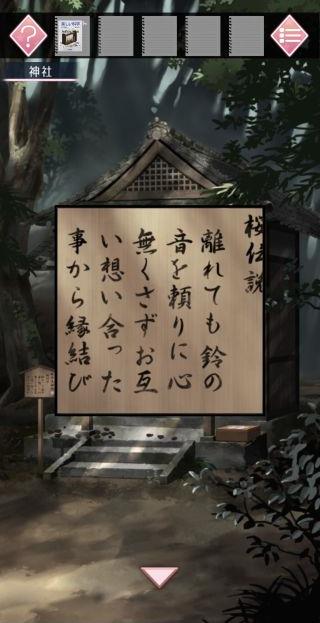 神社
桜伝説
離れても鈴の
音を頼りに心
無くさずお互
い想い合った
事から縁結び